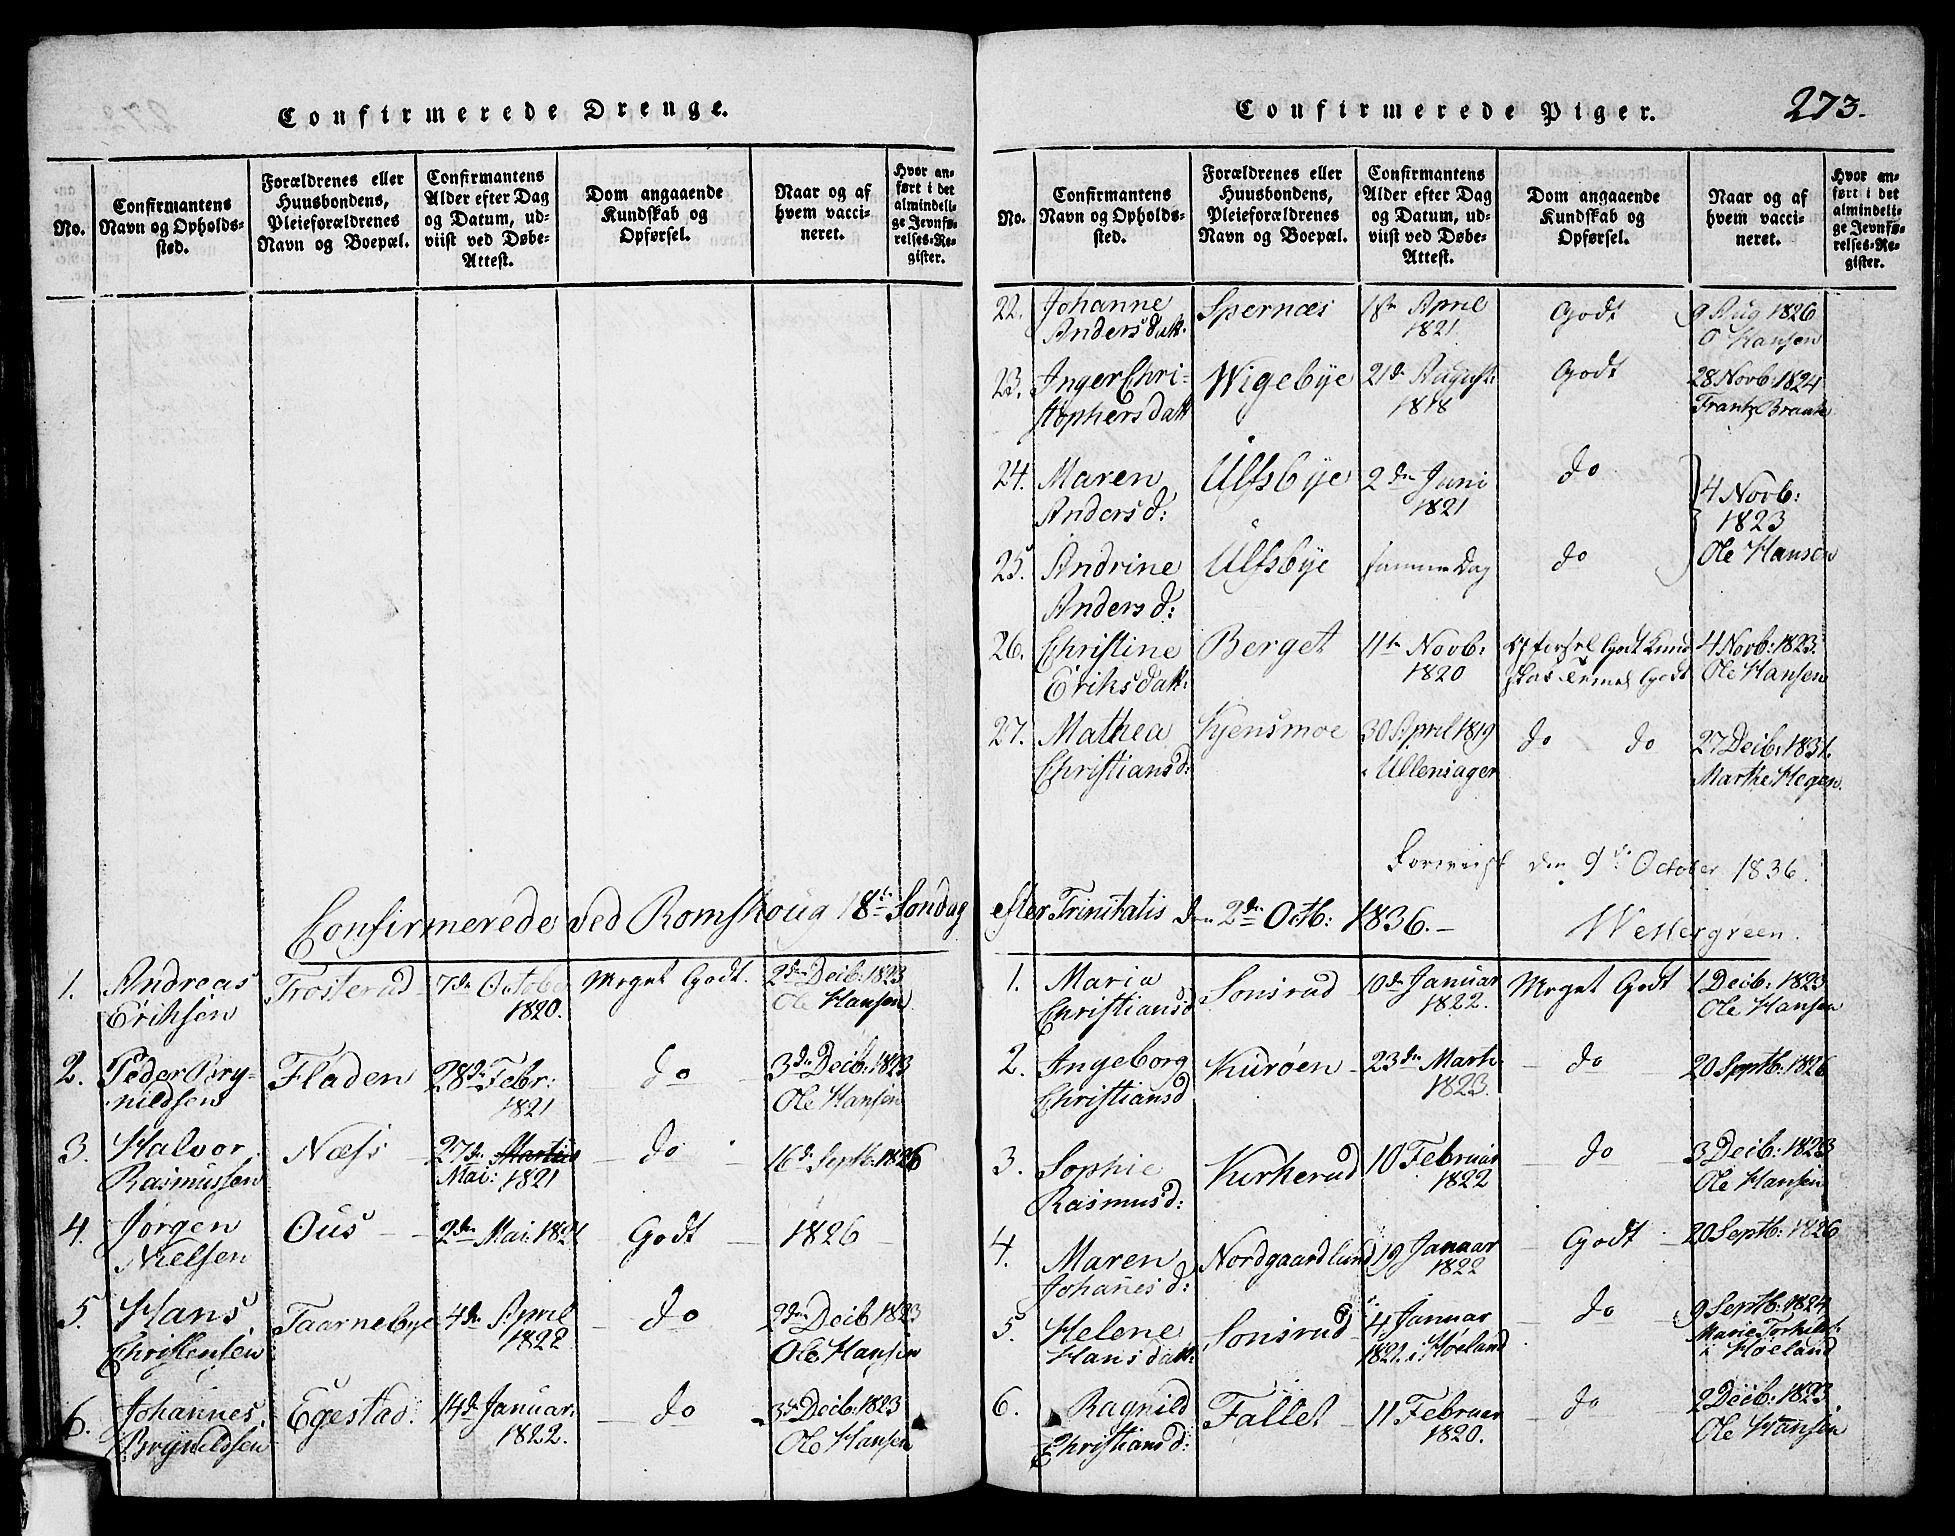 Confirmerede Drenge.
No.
Confirmantens
Navn og Opholds-
sted.
Forældrenes eller
Huusbondens,
Pleieforældrenes
Navn og Boepæl.
Confirmantens
Alder efter Dag
og Datum, ud-
viist ved Døbe-
Attest.
Dom angaaende
Kundskab og
Opførsel.
Naar og af
hvem vacci-
neret.
Hvor an-
ført i det
almindeli-
ge Jevnfø-
relses-Re-
gister.
Confirmerede ved Romskoug 18de Søndag
1. Andreas Trosterud 7de Octobr Meget Godt. 2den Decb: 1823
Eriksen 1820. Ole Hansen
2. Peder Bry- Fladen 28de Febr: do 3de Decb: 1823
nildsen 1821 Ole Hansen
3. Halvor Næss 27de Martius do 16d Septb: 1826
Rasmussen Mai: 1821
4. Jørgen Ous 2den Mai 1821 Godt 1826
Nielsen
5. Hans Taarnebye 4de April do 2den Decb 1823
Christensen 1822 Ole Hansen
6. Johannes Egestad. 14d Januar: do 3de Decb: 1823
Brynildsen 1822. Ole Hansen
Confirmerede Piger. 273.
No.
Confirmantens
Navn og Opholds-
sted.
Forældrenes eller
Huusbondens,
Pleieforældrenes
Navn og Boepæl.
Confirmantens
Alder efter Dag
og Datum, ud-
viist ved Døbe-
Attest.
Dom angaaende
Kundskab og
Opførsel.
Naar og af
hvem vacci-
neret.
Hvor an-
ført i det
almindeli-
ge Jevnfø-
relses-Re-
gister.
22. Johanne Spernæs 18de April Godt 9 Aug 1826
Andersdatt. 1821 O Hansen
23. Inger Chri- Wigebye 21de August Godt 28 Novb: 1824
stophersdatt 1818 Frantz Braate
24. Maren Ulfsbye 2den Juni do 4 Novb:
Andersd: 1821 1823
25. Andrine Ulfsbye samme Dag do Ole Hansen
Andersd:
26. Christine Berget 11te Novb: Opførsel Godt Kund 4 Novb: 1823
Eriksdatt. 1820 skab Godt Ole Hansen
27. Mathea Kjensmoe 30 April 1819 do do 27 Decb: 1831.
Christiansd: i Ullensager Marthe Hegen.
den 9de October 1836.
efter Trinitatis den 2den Octb: 1836.
Westergreen.
1. Maria Sonsrud 10de Januar Meget Godt 1 Decb: 1823
Christiansd 1822. Ole Hansen
2. Ingeborg Kurøen 23de Marts do 20 Septb: 1826
Christiansd 1823.
3. Sophie Kirkerud 10 Februar do 3 Decb: 1823
Rasmusd: 1822 Ole Hansen
4. Maren Nordgaardlund 19 Januar Godt 20 Septb: 1826
Johanesd: 1822
5. Helene Sonsrud 4 Januar do 9 Septb: 1824
Hansdatt: 1821. i Høeland Marie Torkilds:
i Høeland
6. Ragnild Fallet 11 Februar do 2 Decb: 1823
Christiansd: 1820. Ole Hansen